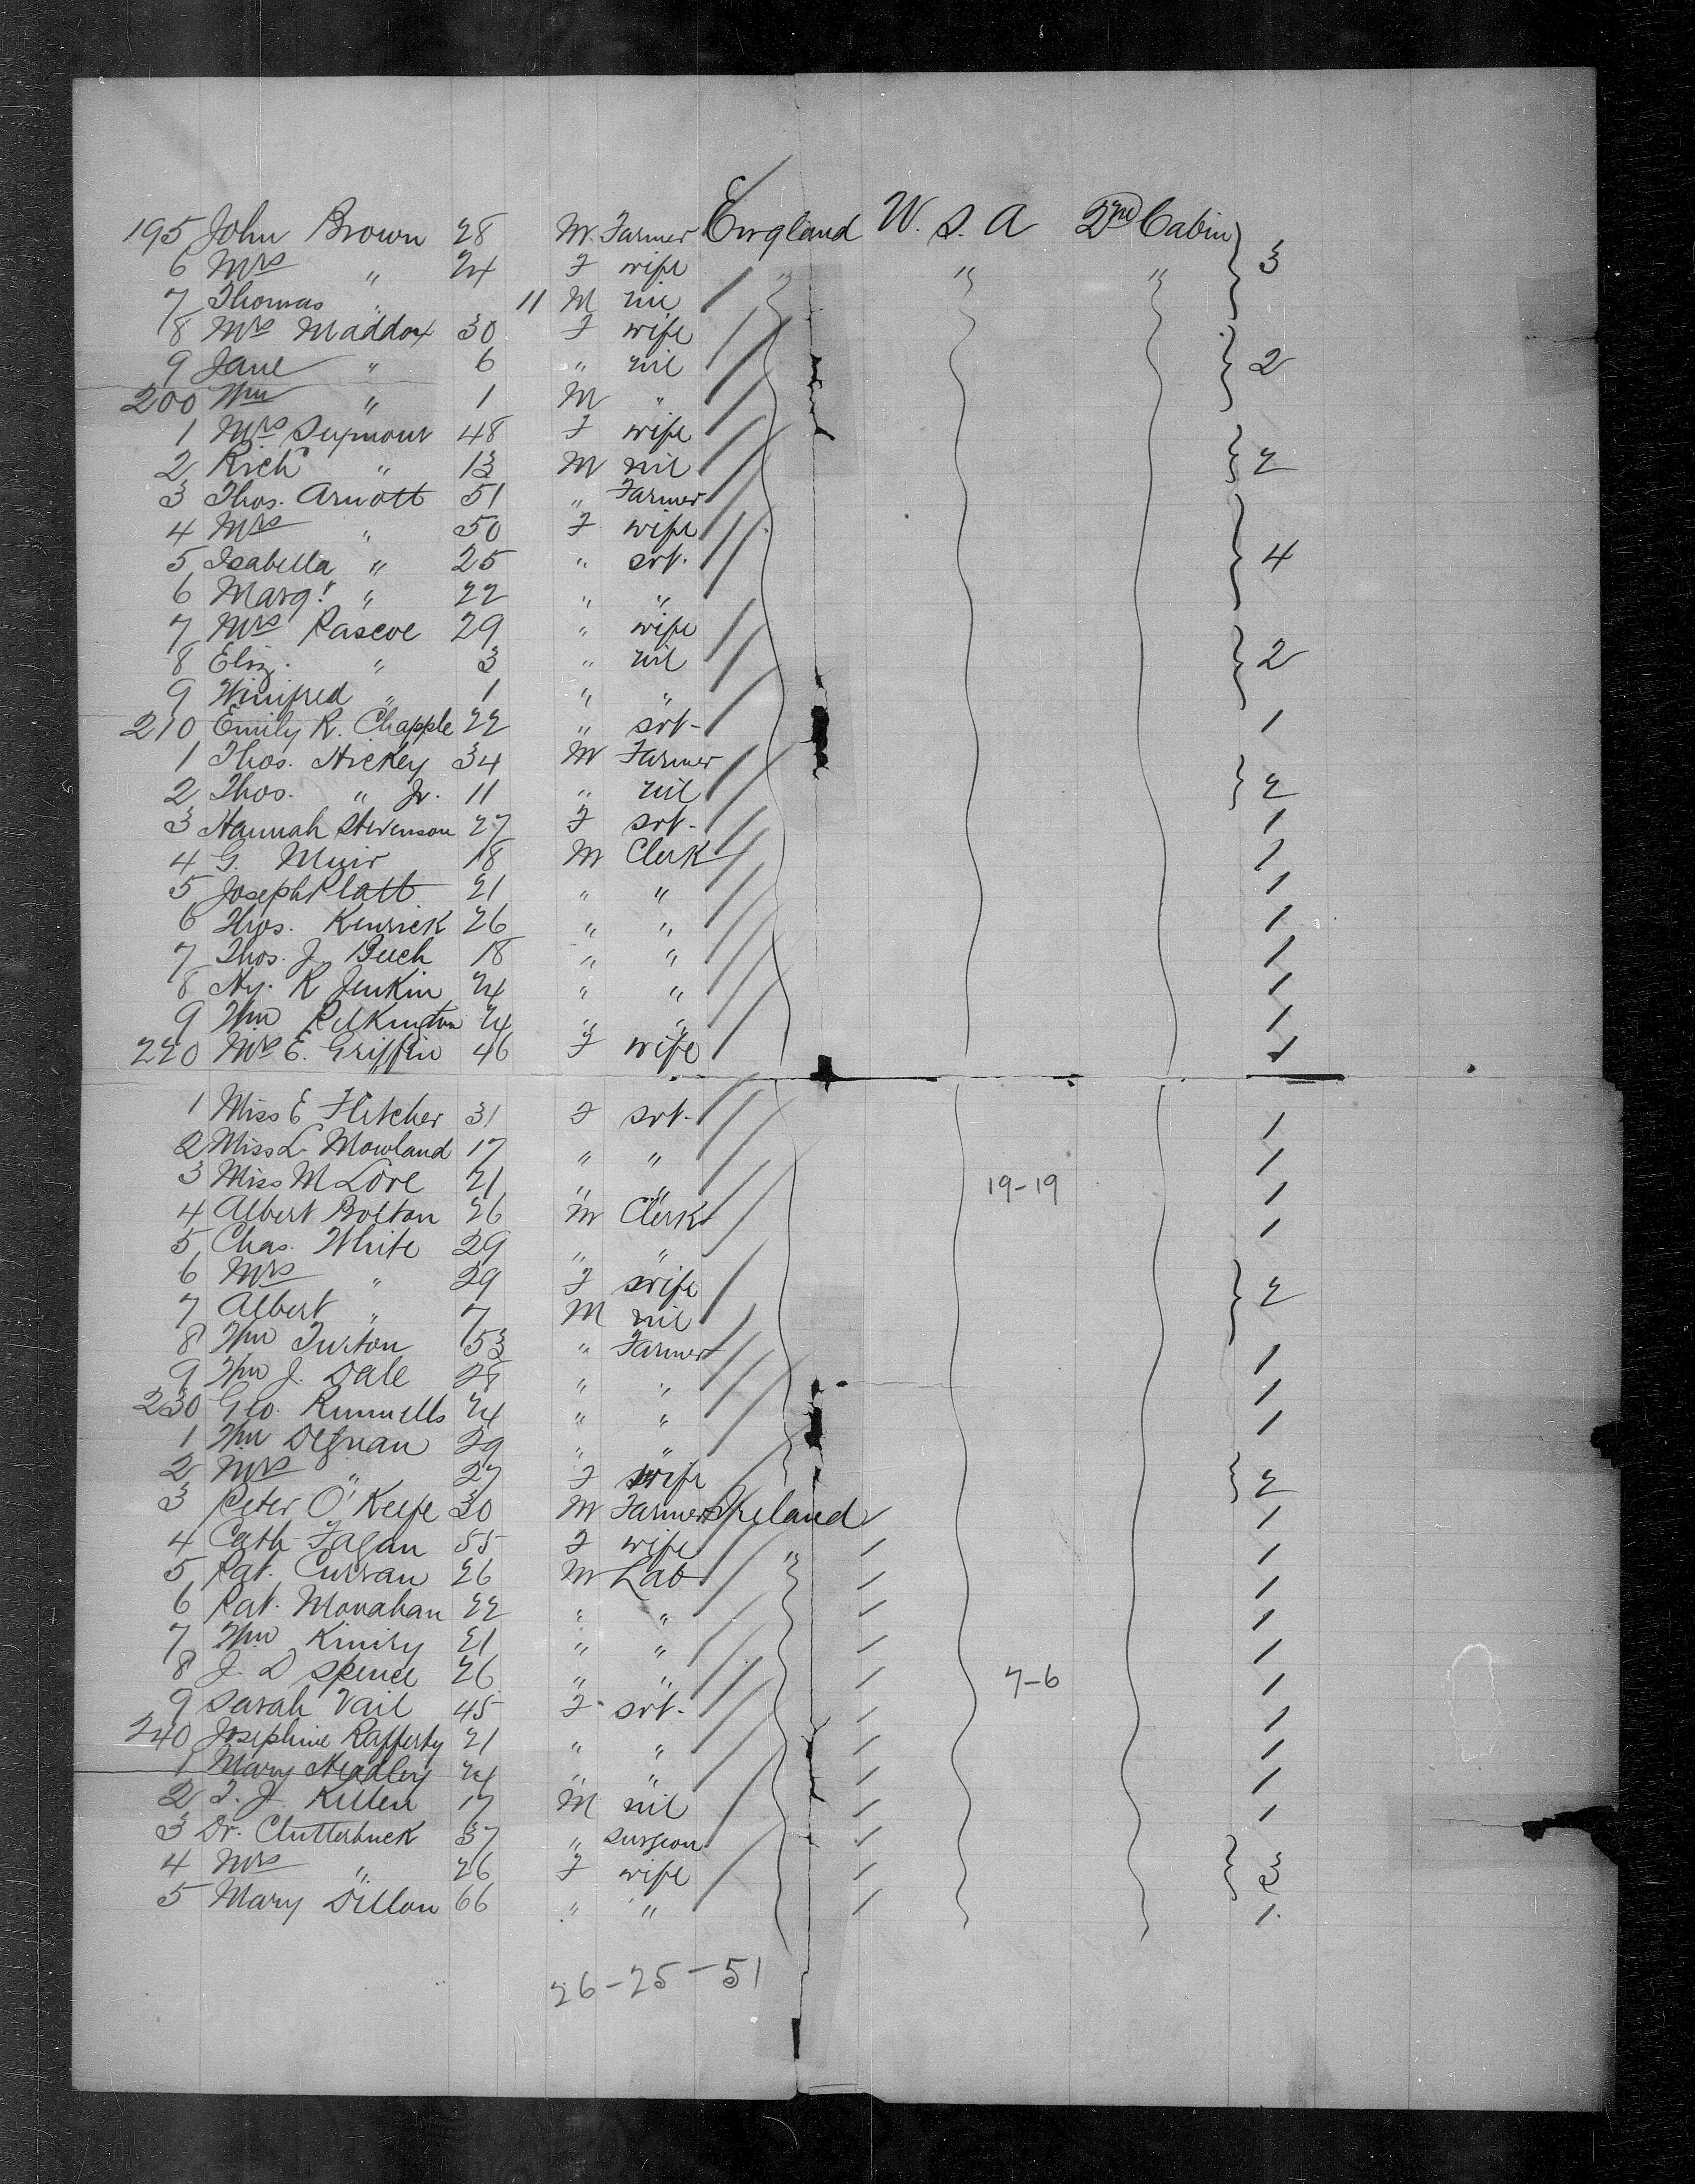 195 John Brown 28 M. Farmer England U. S. A 2nd Cabin } 3
6 Mrs " 24 F wife " " "
7 Thomas " 11 M nil
8 Mrs Maddox 30 F wife
9 Jane " 6 " nil } 2
200 Wm " 1 M "
1 Mrs Seymour 48 F wife
2 Richd " 13 M nil } 2
3 Thos. Arnott 51 " Farmer
4 Mrs " 50 F wife
5 Isabella " 25 " srt. } 4
6 Margt " 22 " "
7 Mrs Pascoe 29 " wife
8 Eliz. " 3 " nil } 2
9 Winifred " 1 " "
210 Emily R. Chapple 22 " srt- 1
1 Thos. Hickey 34 M Farmer
2 Thos. " Jr. 11 " nil } 2
3 Hannah Stevenson 27 F srt- 1
4 G. Muir 18 M Clerk 1
5 Joseph Platt 21 " " 1
6 Thos. Kenrick 26 " " 1
7 Thos. J. Buch 18 " " 1
8 Hy. R Jenkin 24 " " 1
9 Wm Pilkington 24 " " 1
220 Mrs E. Griffin 46 F wife 1
1 Miss E Fletcher 31 F srt- 1
2 Miss L. Mowland 17 " " 1
3 Miss M Love 21 " " 19-19 1
4 Albert Bolton 26 M Clerk 1
5 Chas. White 29 " "
6 Mrs " 29 F wife } 2
7 Albert " 7 M nil
8 Wm Turton 53 " Farmer 1
9 Wm J. Dale 28 " " 1
230 Geo. Runnells 24 " " 1
1 Wm Degnan 29 " "
2 Mrs " 27 F wife } 2
3 Peter O'Keefe 30 M Farmer Ireland / 1
4 Cath Fagan 55 F wife " / 1
5 Pat. Curran 26 M Lab / 1
6 Pat. Monahan 22 " " / 1
7 Wm Kiniry 21 " " / 1
8 J. D Spence 26 " " / 7-6 1
9 Sarah Vail 45 F srt. / 1
240 Josephine Rafferty 21 " " / 1
1 Mary Headley 24 " " / 1
2 T. J. Killen 17 M nil / 1
3 Dr. Clutterbuck 37 " surgeon /
4 Mrs " 26 F wife / } 3
5 Mary Dillon 66 " " / 1.
26-25-51